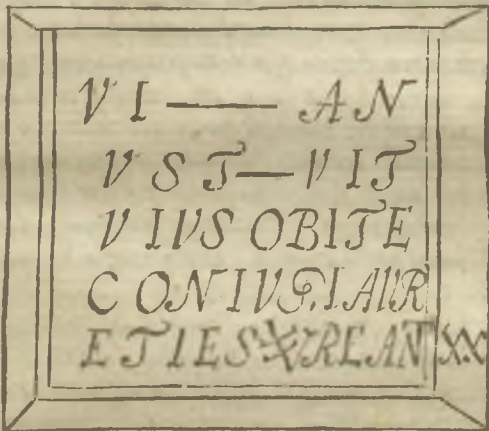 VI —— AN
VST—VIT
VIVS OBITE
CONIVG.I AVR
ETIES XREAN XX